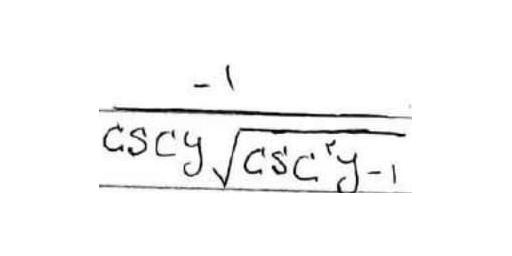 -1
csc y √(csc²y-1)